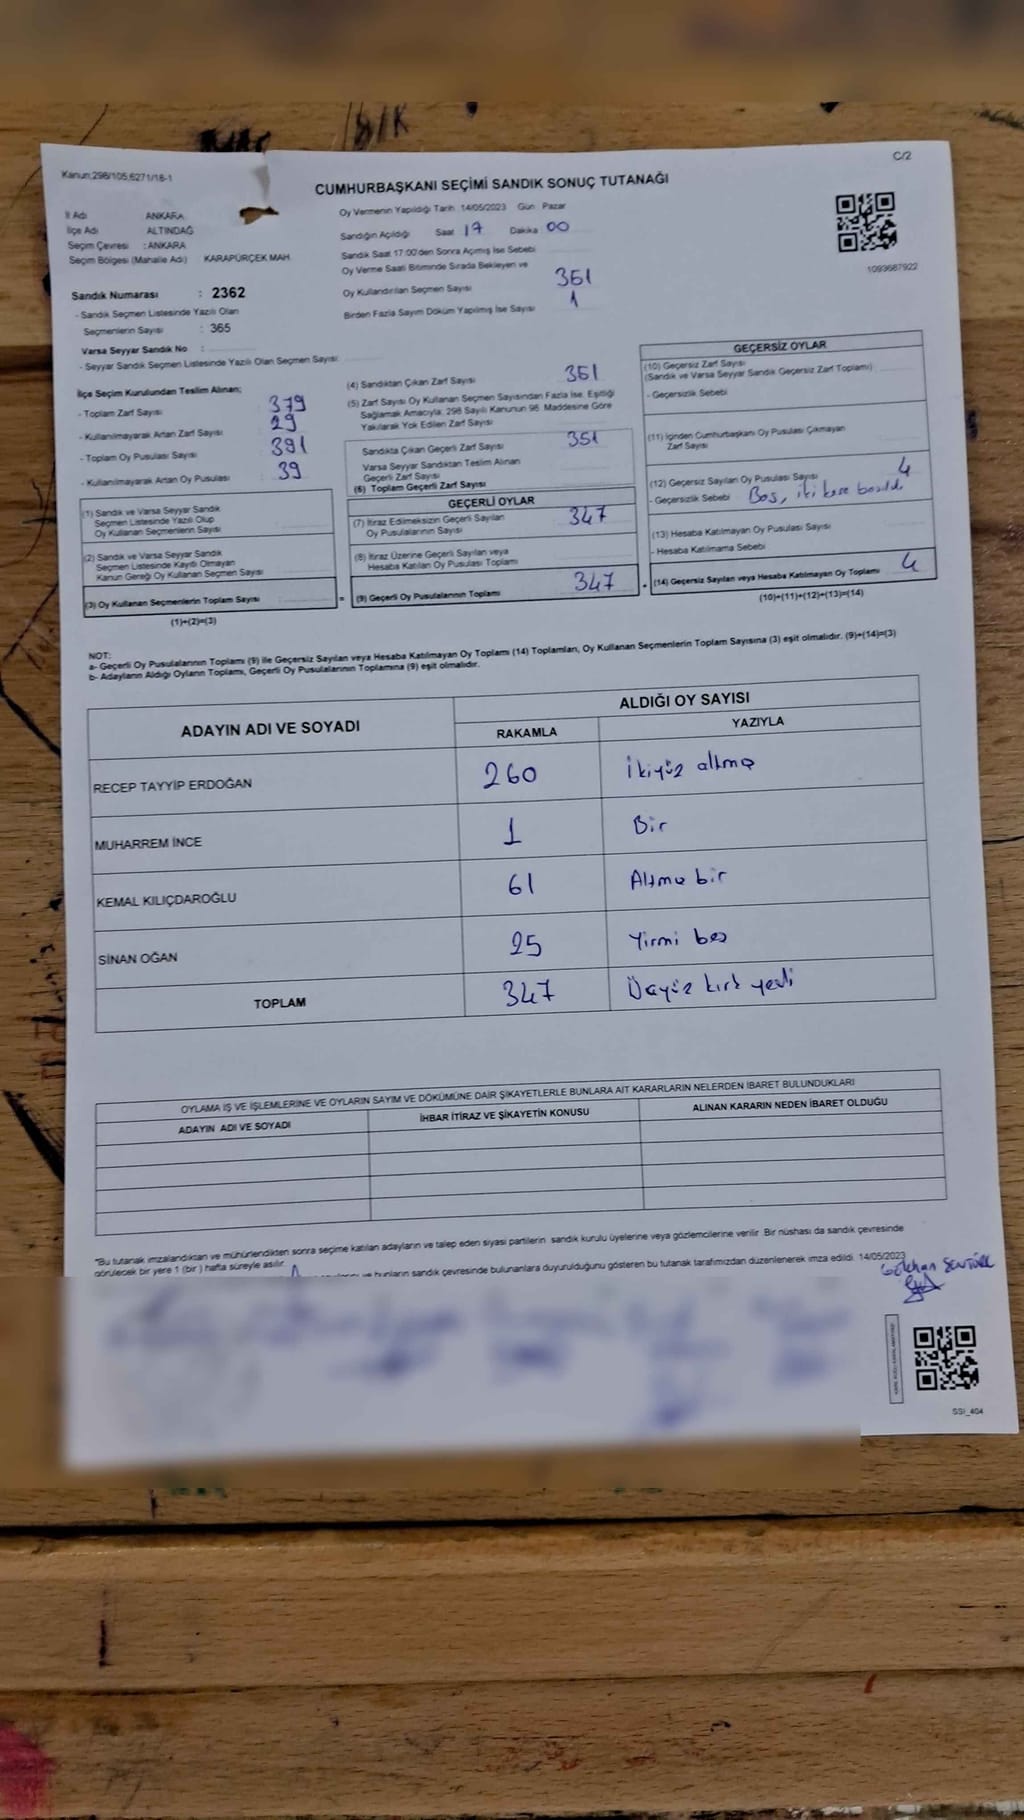 C/2
Kanun;298/105,6271/18-1
CUMHURBAŞKANI SEÇİMİ SANDIK SONUÇ TUTANAĞI
İl Adı ANKARA
İlçe Adı ALTINDAĞ
Seçim Çevresi : ANKARA
Seçim Bölgesi (Mahalle Adı) KARAPÜRÇEK MAH.
Oy Vermenin Yapıldığı Tarih 14/05/2023 Gün Pazar
Sandığın Açıldığı Saat 17 Dakika 00
Sandık Saat 17:00'den Sonra Açılmış İse Sebebi
Oy Verme Saati Bitiminde Sırada Bekleyen ve
Oy Kullandırılan Seçmen Sayısı 351
Birden Fazla Sayım Döküm Yapılmış İse Sayısı 1
1093687922
Sandık Numarası : 2362
- Sandık Seçmen Listesinde Yazılı Olan
Seçmenlerin Sayısı : 365
Varsa Seyyar Sandık No :
- Seyyar Sandık Seçmen Listesinde Yazılı Olan Seçmen Sayısı:
İlçe Seçim Kurulundan Teslim Alınan;
- Toplam Zarf Sayısı 379
- Kullanılmayarak Artan Zarf Sayısı 29
- Toplam Oy Pusulası Sayısı 391
- Kullanılmayarak Artan Oy Pusulası 39
(1) Sandık ve Varsa Seyyar Sandık
Seçmen Listesinde Yazılı Olup
Oy Kullanan Seçmenlerin Sayısı
(2) Sandık ve Varsa Seyyar Sandık
Seçmen Listesinde Kayıtlı Olmayan
Kanun Gereği Oy Kullanan Seçmen Sayısı
(3) Oy Kullanan Seçmenlerin Toplam Sayısı
(1)+(2)=(3)
(4) Sandıktan Çıkan Zarf Sayısı 351
(5) Zarf Sayısı Oy Kullanan Seçmen Sayısından Fazla İse, Eşitliği
Sağlamak Amacıyla, 298 Sayılı Kanunun 98. Maddesine Göre
Yakılarak Yok Edilen Zarf Sayısı
Sandıkta Çıkan Geçerli Zarf Sayısı 351
Varsa Seyyar Sandıktan Teslim Alınan
Geçerli Zarf Sayısı
(6) Toplam Geçerli Zarf Sayısı
GEÇERLİ OYLAR
(7) İtiraz Edilmeksizin Geçerli Sayılan
Oy Pusulalarının Sayısı 347
(8) İtiraz Üzerine Geçerli Sayılan veya
Hesaba Katılan Oy Pusulası Toplamı
= (9) Geçerli Oy Pusulalarının Toplamı 347
GEÇERSİZ OYLAR
(10) Geçersiz Zarf Sayısı
(Sandık ve Varsa Seyyar Sandık Geçersiz Zarf Toplamı)
- Geçersizlik Sebebi
(11) İçinden Cumhurbaşkanı Oy Pusulası Çıkmayan
Zarf Sayısı
(12) Geçersiz Sayılan Oy Pusulası Sayısı 4
- Geçersizlik Sebebi Boş, iki kere basıldı
(13) Hesaba Katılmayan Oy Pusulası Sayısı
- Hesaba Katılmama Sebebi
+ (14) Geçersiz Sayılan veya Hesaba Katılmayan Oy Toplamı 4
(10)+(11)+(12)+(13)=(14)
NOT:
a- Geçerli Oy Pusulalarının Toplamı (9) ile Geçersiz Sayılan veya Hesaba Katılmayan Oy Toplamı (14) Toplamları, Oy Kullanan Seçmenlerin Toplam Sayısına (3) eşit olmalıdır. (9)+(14)=(3)
b- Adayların Aldığı Oyların Toplamı, Geçerli Oy Pusulalarının Toplamına (9) eşit olmalıdır.
ADAYIN ADI VE SOYADI ALDIĞI OY SAYISI
RAKAMLA YAZIYLA
RECEP TAYYİP ERDOĞAN 260 İkiyüz altmış
MUHARREM İNCE 1 Bir
KEMAL KILIÇDAROĞLU 61 Altmış bir
SİNAN OĞAN 25 Yirmi beş
TOPLAM 347 Üçyüz kırk yedi
OYLAMA İŞ VE İŞLEMLERİNE VE OYLARIN SAYIM VE DÖKÜMÜNE DAİR ŞİKAYETLERLE BUNLARA AİT KARARLARIN NELERDEN İBARET BULUNDUKLARI
ADAYIN ADI VE SOYADI İHBAR İTİRAZ VE ŞİKAYETİN KONUSU ALINAN KARARIN NEDEN İBARET OLDUĞU
"Bu tutanak imzalandıktan ve mühürlendikten sonra seçime katılan adayların ve talep eden siyasi partilerin sandık kurulu üyelerine veya gözlemcilerine verilir. Bir nüshası da sandık çevresinde
görülecek bir yere 1 (bir) hafta süreyle asılır.
ve bunların sandık çevresinde bulunanlara duyurulduğunu gösteren bu tutanak tarafımızdan düzenlenerek imza edildi. 14/05/2023
Gökhan ŞENTÜRK
SSI_404